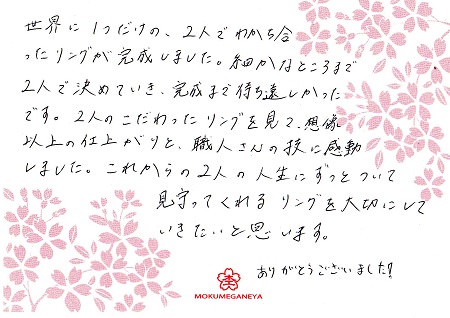 世界に1つだけの、2人でわかち合
ったリングが完成しました。細かなところまで
2人で決めていき、完成まで待ち遠しかった
です。2人のこだわったリングを見て、想像
以上の仕上がりと、職人さんの技に感動
しました。これからの2人の人生にずっとついて
見守ってくれるリングを大切にして
いきたいと思います。
ありがとうございました!
MOKUMEGANEYA